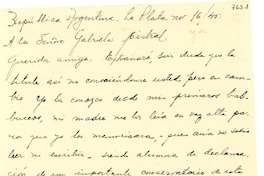 7651
República Argentina. La Plata nov 16/40.
A la Señora Gabriela Mistral
Querida amiga. Extrañará, sin duda que la
titule así no conociéndome usted, pero en cam-
bio yo la conozco desde mis primeros bal-
buceos, mi madre me leía en voz alta
para que yo las memorizara - pues aún no sabía
leer ni escribir - siendo alumna de declama-
ción de un importante conservatorio de esta